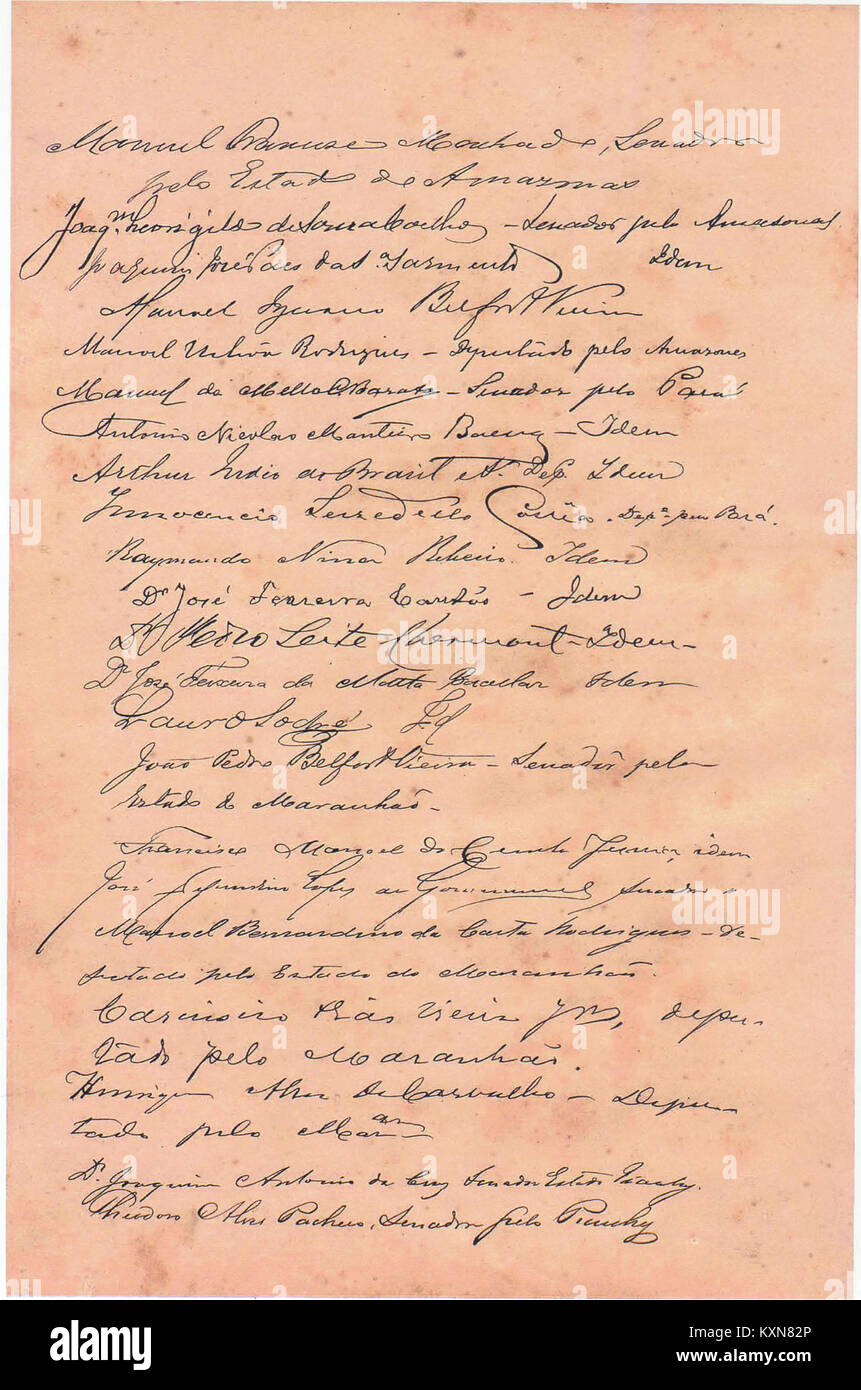 Manuel Machado, Senador
pelo Estado de Amazonas
Joaq.m Leovigildo de Souza Coelho - Senador pelo Amazonas.
Joaquim José Paes da S.a Sarmento Idem
Manoel Ignacio Belfort Vieira
Manoel Uchôa Rodrigues - Deputado pelo Amazonas
Manuel de Mello C. Barata - Senador pelo Pará
Antonio Nicolao Monteiro Baena - Idem
Arthur Indio do Brasil e S.a Dep. Idem
Innocencio Serzedello Corrêa. Dep.o pelo Pará.
Raymundo Nina Ribeiro. Idem
Dr José Ferreira Cantão - Idem
Dr Pedro Leite Chermont - Idem -
Dr José Teixeira da Matta Bacellar Idem
Lauro Sodré Id
João Pedro Belfort Vieira - Senador pelo
Estado do Maranhão -
Francisco Manoel da Cunha Junior, idem
José Secundino Lopes de Gomensoro Senador
Manoel Bernardino da Costa Rodrigues - De-
putado pelo Estado do Maranhão.
Casimiro Dias Vieira Jor, depu-
tado pelo Maranhão.
Henrique Alves de Carvalho - Depu-
tado pelo Maran
Dr Joaquim Antonio da Cruz Senador Estado Piauhy.
Theodoro Alves Pacheco, Senador pelo Piauhy
alamy
alamy
Image ID: KXN82P
www.alamy.com